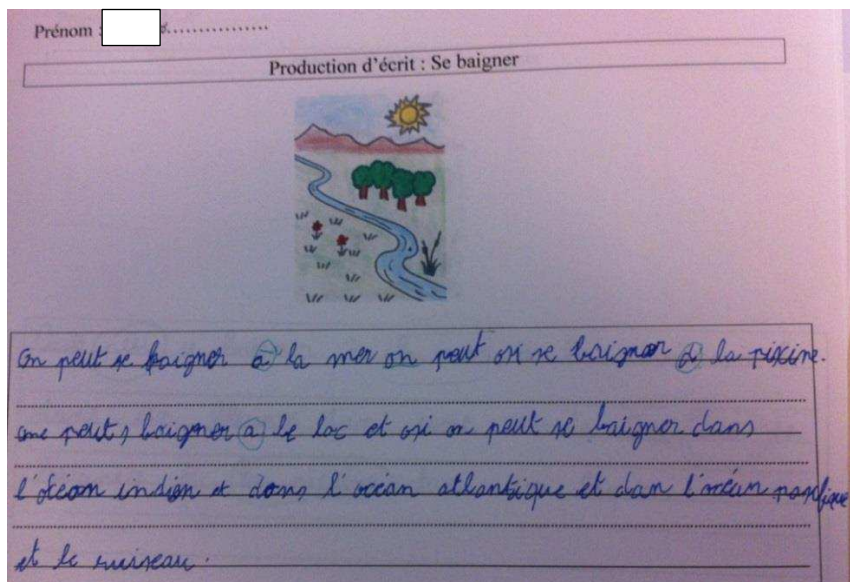 Prénom : ................
Production d'écrit : Se baigner
on peut se baigner a la mer on peut osi se baignar a la pixine.
one peut s baigner a le lac et osi on peut se baigner dans
l'océan indien et dans l'océan atlantique et dan l'océan pasifique
et le ruiseau.